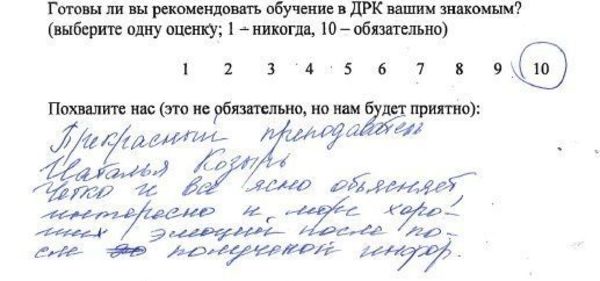 Готовы ли вы рекомендовать обучение в ДРК вашим знакомым?
(выберите одну оценку; 1 – никогда, 10 – обязательно)
1 2 3 4 5 6 7 8 9 10
Похвалите нас (это не обязательно, но нам будет приятно):
Прекрасный преподаватель
Наталья Козырь
Четко и все ясно объясняет,
интересно и море хоро-
ших эмоций после по-
сле полученой инфор.